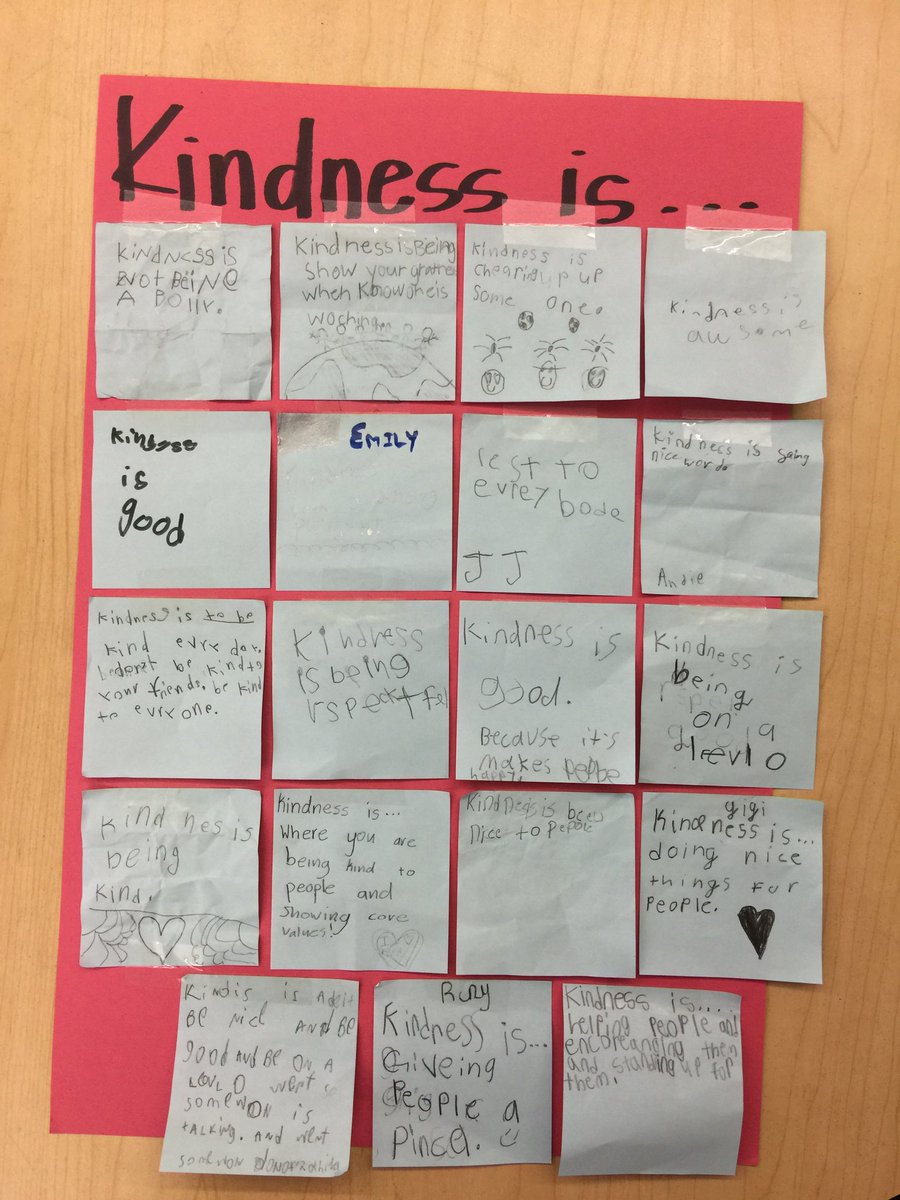 Kindness is...
KiNDNESS iS
NOT BEiNG
A BOlly.
Kindness is Being
Show your
when
is
Kindness is
up up
Some one.
Kindness is
awsome
Kindness
is
good
EMILY
rest TO
evrey bode
JJ
Kindness is saing
nice words
Andie
Kindness is to be
Kind evry day.
be kind to
your friends. be kind
to evry one.
Kindness
is being
rspectful
Kindness is
good.
BecAuse it's
makes
happy.
Kindness is
being
on a
leevl 0
Kind nes is
being
Kind.
Kindness is...
Where you are
being kind to
people and
Showing core
values!
Kindness is
nice to
gigi
Kindness is...
doing nice
things for
PeoPLe.
is
BE AND BE
good AND BE ON A
0 went
is
tALKING. AND went
Kindness is...
Giveing
People a
Pincel.
Kindness is....
helping people and
them
and standing up for
them.